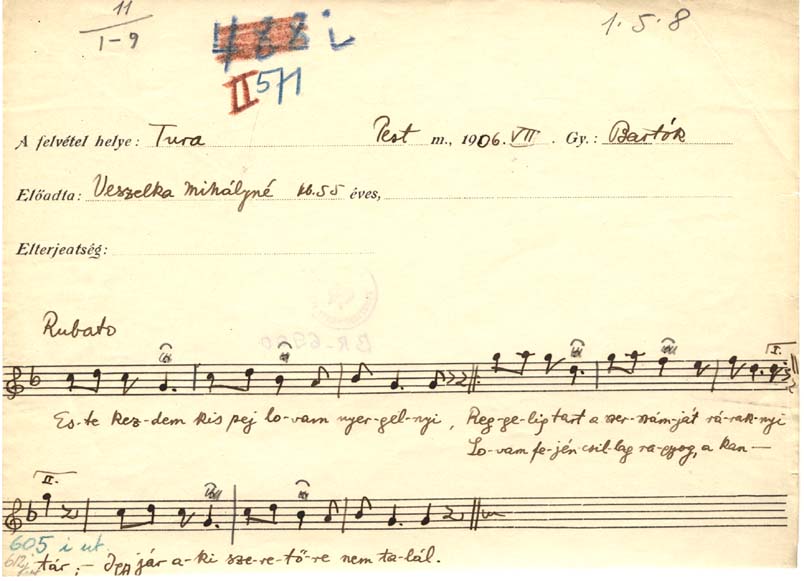 11
1-9
1·5·8
488 i
II 571
A felvétel helye: Tura Pest m., 1906. VII. Gy.: Bartók
Előadta: Veszelka Mihályné kb. 55 éves,
Elterjeatség:
B.R.-6960
Rubato
I.
Es-te kez-dem kis pej lo-vam nyer-gel-nyi, Reg-ge-lig tart a szer-szám-ját rá-rak-nyi
Lo-vam fe-jén csil-lag ra-gyog, a kan—
II.
605 i ut.
tár; — jár a-ki sze-re-tő-re nem ta-lál.